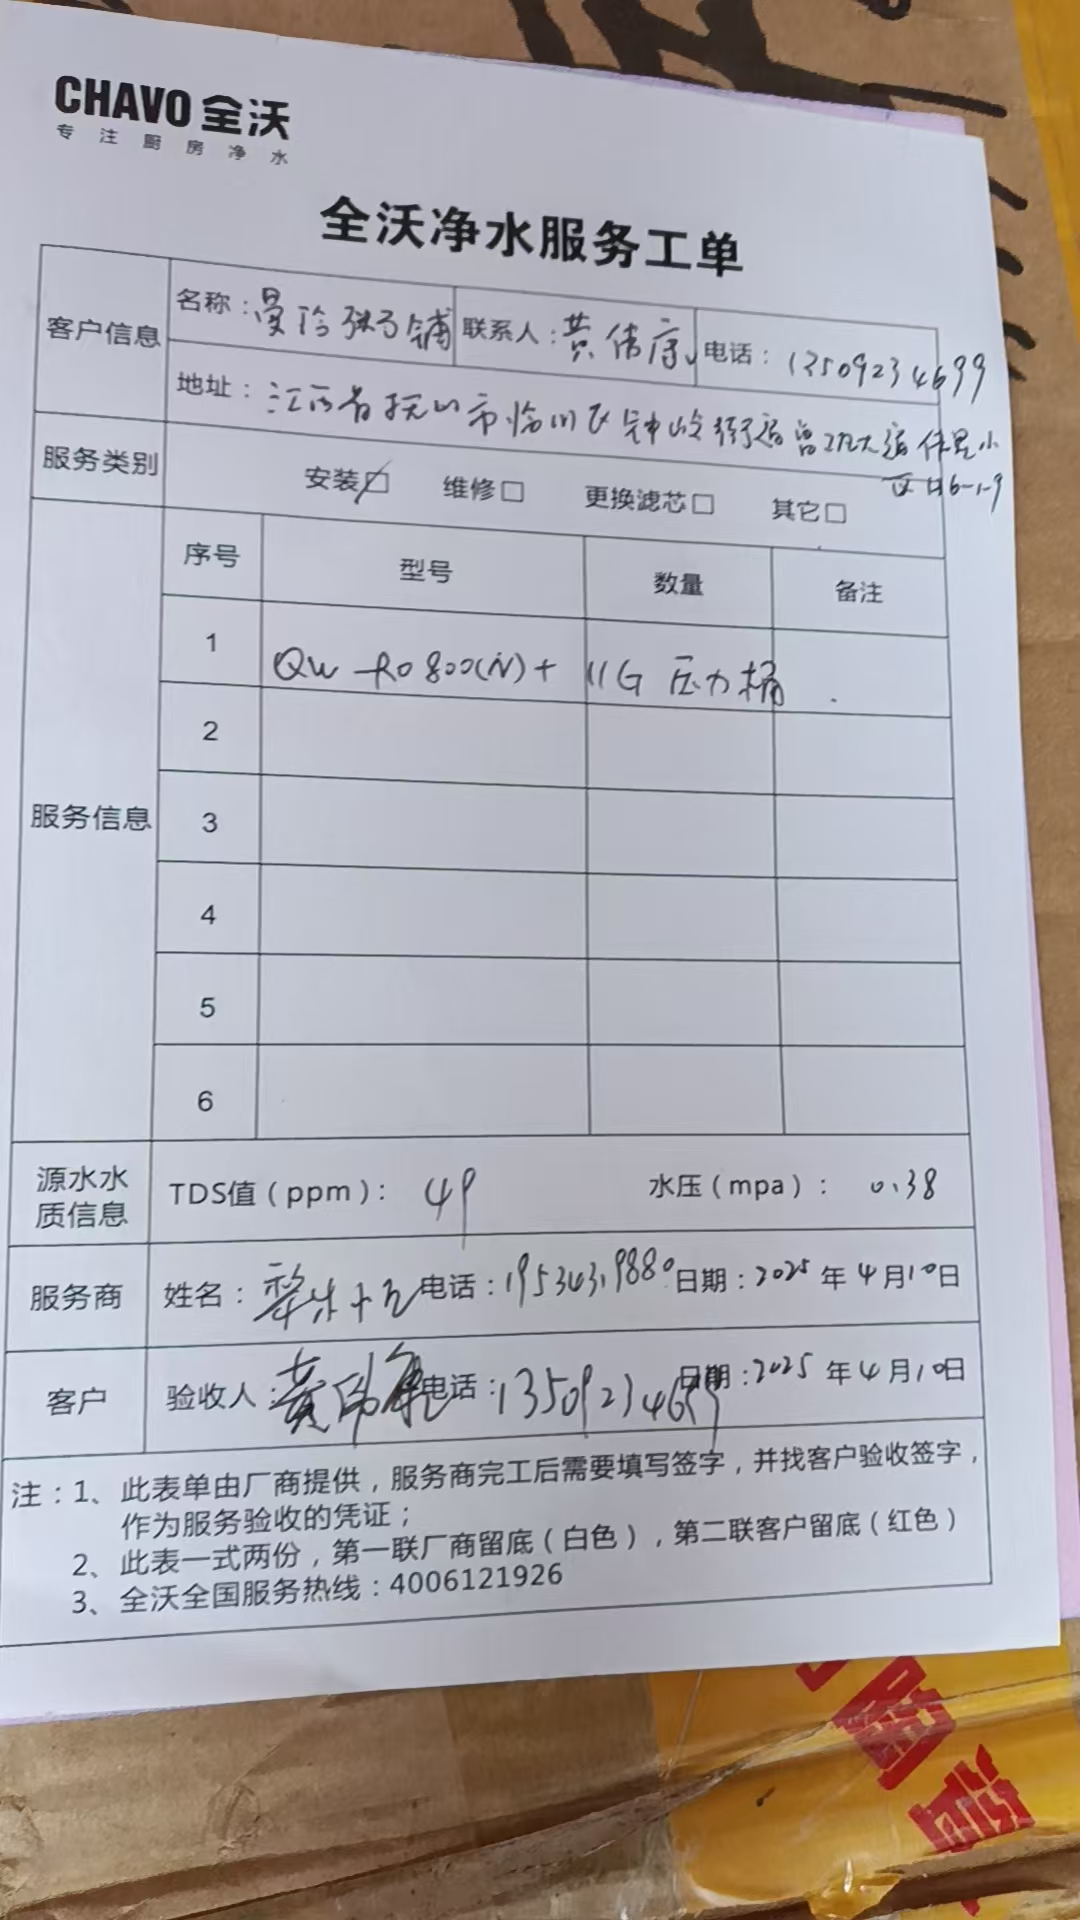 CHAVO 全沃
专注厨房净水
全沃净水服务工单
客户信息 名称：曼玲粥铺 联系人：黄伟康 电话：13509234699
地址：江西省抚州市临川区钟岭街道 大道伟星小
区 6-1-9
服务类别 安装☑ 维修□ 更换滤芯□ 其它□
服务信息 序号 型号 数量 备注
1 QW-R0800(N)+ 11G 压力桶
2
3
4
5
6
源水水质信息 TDS值（ppm）： 49 水压（mpa）： 0.38
服务商 姓名： 电话：19534319880 日期：2025年4月10日
客户 验收人：黄伟康 电话：13509234699 日期：2025年4月10日
注：1、此表单由厂商提供，服务商完工后需要填写签字，并找客户验收签字，
作为服务验收的凭证；
2、此表一式两份，第一联厂商留底（白色），第二联客户留底（红色）
3、全沃全国服务热线：4006121926